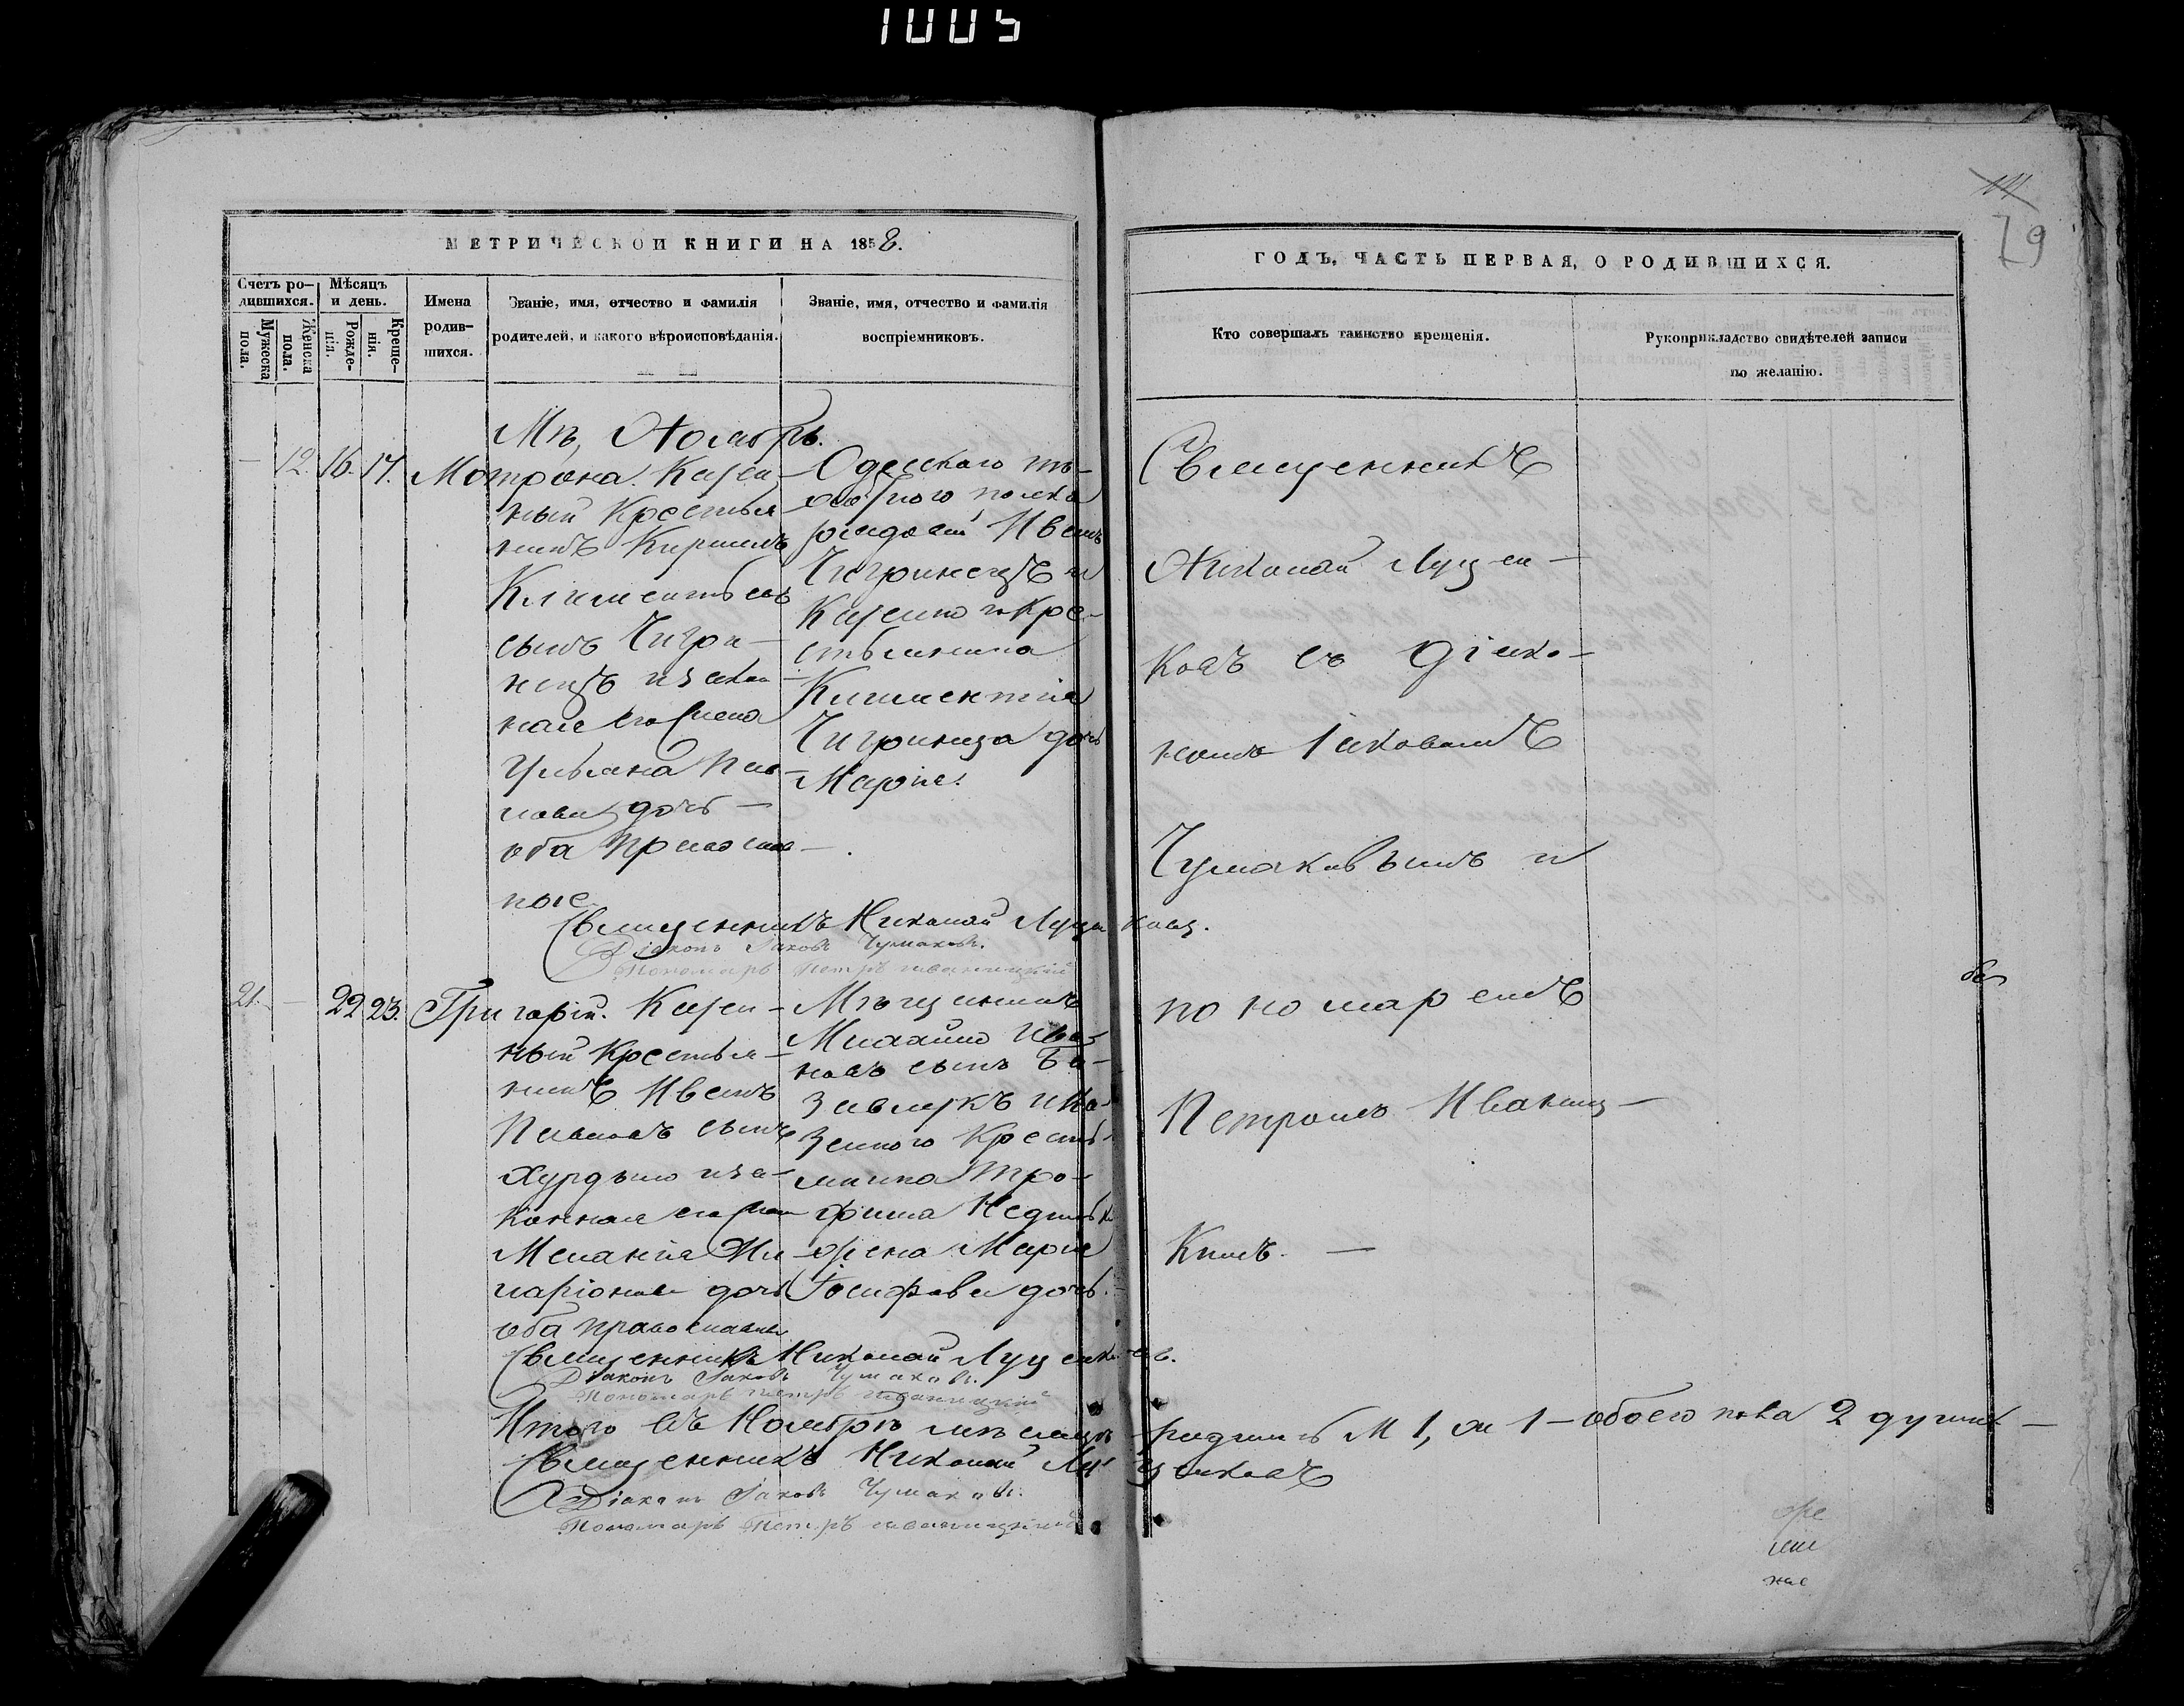 1005
79
МЕТРИЧЕСКОЙ КНИГИ НА 1858.
ГОДЪ, ЧАСТЬ ПЕРВАЯ, О РОДИВШИХСЯ.
Счетъ ро-
дившихся.
Мужеска пола.
Женска пола.
Мѣсяцъ
и день.
Рожде-
нія.
Креще-
нія.
Имена
родив-
шихся.
Званіе, имя, отчество и фамилія
родителей, и какого вѣроисповѣданія.
Званіе, имя, отчество и фамилія
воспріемниковъ.
Кто совершалъ таинство крещенія.
Рукоприкладство свидѣтелей записи
по желанію.
Мц, Ноябрь.
— 12. 16. 17. Матрона.
Казен-
ный Крестья-
нинъ Кирилъ
Климентьевъ
сынъ Чигри-
нецъ изакон-
ная его жена
Ульяна Пав-
лова дочь —
оба православ-
ные.
Одесскаго
полка
рядовой Иванъ
Чигринецъ и
Казеннаго Кре-
стьянина
Климентія
Чигринца дочь
Марія.
Священникъ
Николай Луцен-
ковъ съ Діако-
номъ Іаковомъ
Чумаковымъ и
пономаремъ
Петромъ Иваниц-
кимъ. —
Священникъ Николай Луценковъ.
Діаконъ Іаковъ Чумаковъ.
Пономарь Петръ Иваницкій
21. — 22 23. Григорій.
Казен-
ный Крестья-
нинъ Иванъ
Павловъ сынъ
иза-
конная его жена
Меланія Ил-
ларіонова дочь
оба православные
Мѣщанинъ
Михаилъ Ива-
новъ сынъ
и Ка-
зеннаго Кресть-
янина Тро-
фима
жена Марія
Іосифова дочь.
Священникъ Николай Луценковъ.
Діаконъ Іаковъ Чумаковъ.
Пономарь Петръ Иваницкій
Итого въ Ноябрѣ мѣсяцѣ родилось М 1, ж 1 — обоего пола 2 души —
Священникъ Николай Луценковъ
Діаконъ Іаковъ Чумаковъ.
Пономарь Петръ Иваницкій